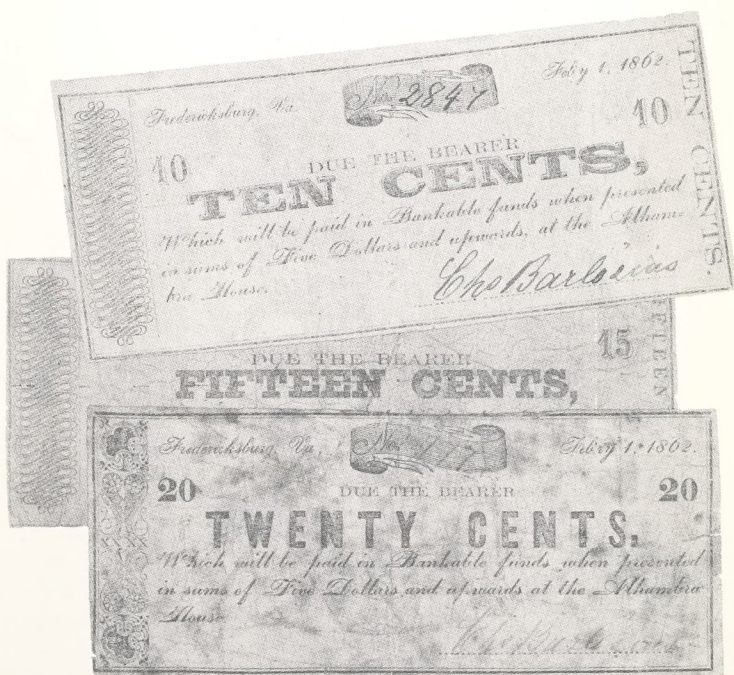 Feb'y 1, 1862.
Fredericksburg, Va.
No. 2847
10
10
DUE THE BEARER
TEN CENTS,
Which will be paid in Bankable funds when presented
in sums of Five Dollars and upwards, at the Alham-
bra House.
TEN CENTS.
DUE THE BEARER
15
FIFTEEN CENTS,
Fredericksburg, Va.,
No. 177
Feb'y 1, 1862.
20
20
DUE THE BEARER
TWENTY CENTS,
Which will be paid in Bankable funds when presented
in sums of Five Dollars and upwards at the Alhambra
House